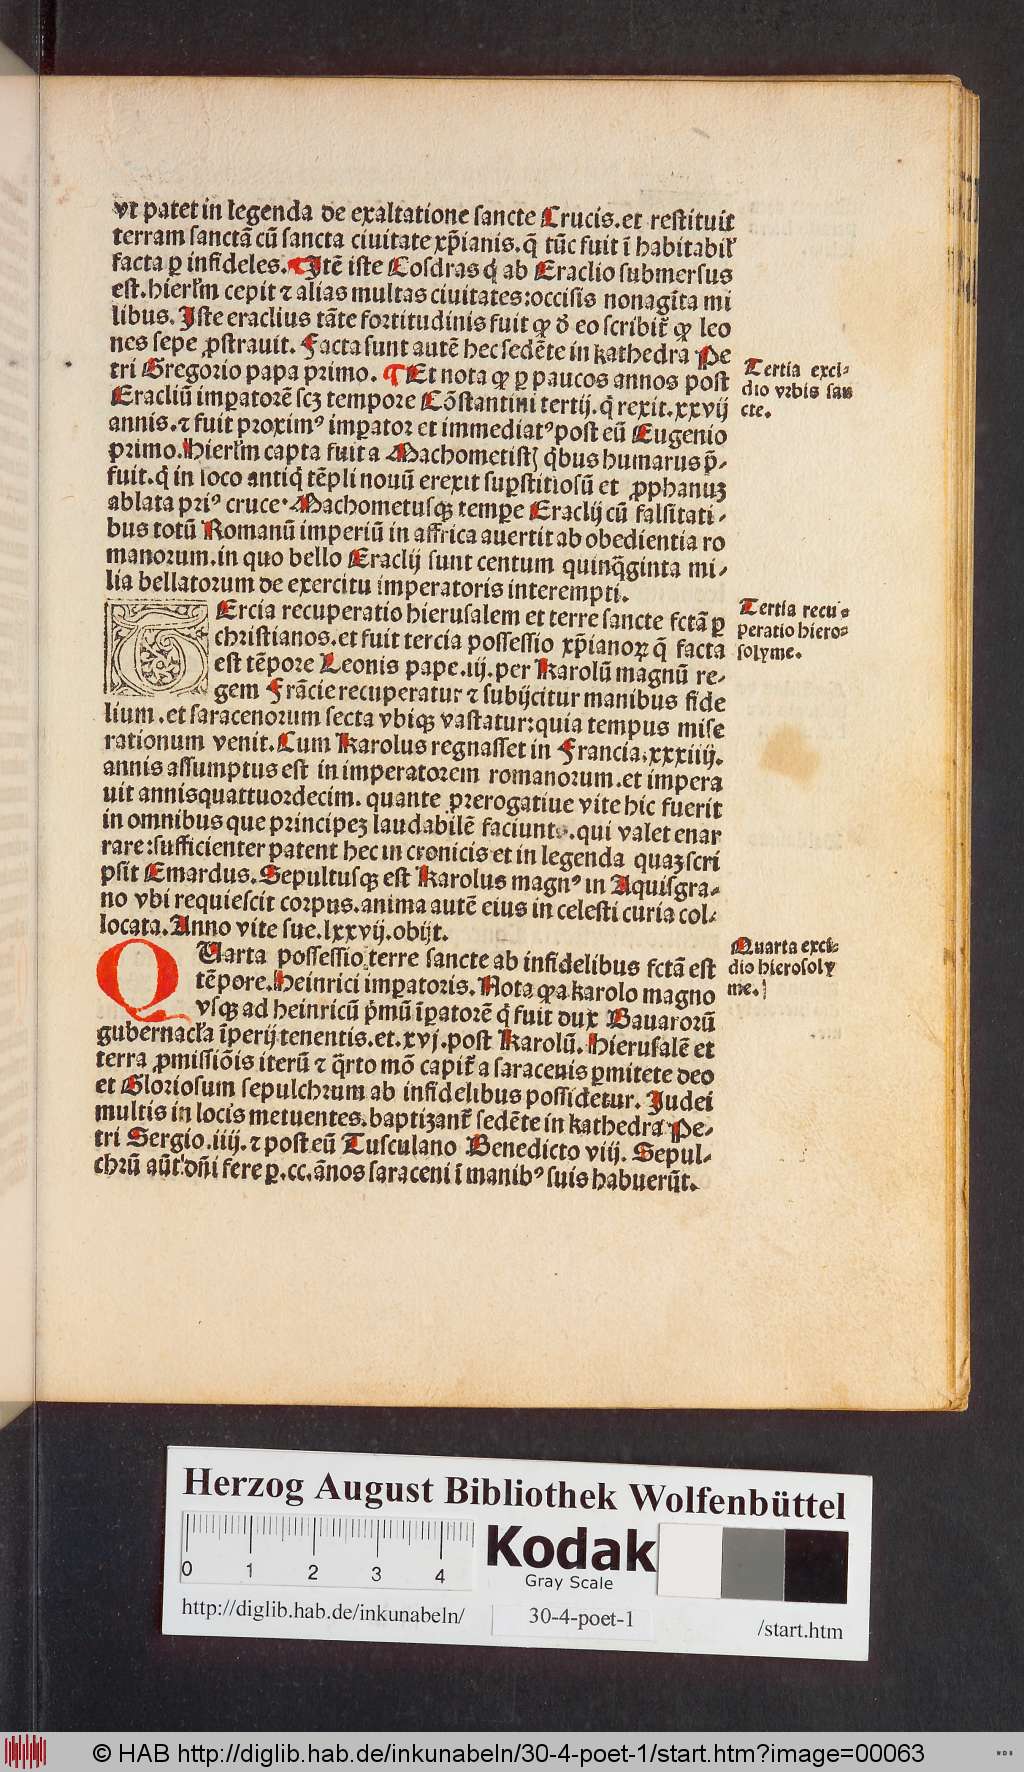 vt patet in legenda de exaltatione sancte Crucis. et restituit
terram sanctā cū sancta ciuitate xp̄ianis. q̄ tūc fuit ī habitabil̛
facta ꝑ infideles. ¶ Itē iste Cosdras q̇ ab Eraclio submersus
est. hierl̄m cepit ⁊ alias multas ciuitates: occisis nonagīta mi
libus. Iste eraclius tāte fortitudinis fuit ꝙ d̄ eo scribit̛ ꝙ leo
nes sepe ꝓstrauit. Facta sunt autē hec sedēte in kathedra Pe
tri Gregorio papa primo. ¶ Et nota ꝙ ꝑ paucos annos post
Eracliū imꝑatorē scꝫ tempore Cōstantini tertij. q̇ rexit. xxvij
annis. ⁊ fuit proximꝰ imꝑator et immediatꝰ post eū Eugenio
primo. Hierl̄m capta fuit a Machometistꝭ q̇bus humarus p̄-
fuit. q̇ in loco antiq̇ tēpli nouū erexit suꝑstitiosū et ꝓphanuꝫ
ablata priꝰ cruce. Machometusqꝫ tempe Eraclij cū falsitati-
bus totū Romanū imperiū in affrica auertit ab obedientia ro
manorum. in quo bello Eraclij sunt centum quinq̄ginta mi-
lia bellatorum de exercitu imperatoris interempti.
Tertia exci-
dio vrbis san
cte.
TErcia recuperatio hierusalem et terre sancte fctā ꝑ
christianos. et fuit tercia possessio xp̄ianoꝝ q̄ facta
est tēpore Leonis pape. iij. per Karolū magnū re-
gem Frācie recuperatur ⁊ subijcitur manibus fide
lium. et saracenorum secta vbiqꝫ vastatur: quia tempus mise
rationum venit. Cum Karolus regnasset in Francia. xxxiiij.
annis assumptus est in imperatorem romanorum. et impera
uit annis quattuordecim. quante prerogatiue vite hic fuerit
in omnibus que principeꝫ laudabilē faciunt. qui valet enar
rare: sufficienter patent hec in cronicis et in legenda quaꝫ scri
psit Emardus. Sepultusqꝫ est Karolus magnꝰ in Aquisgra-
no vbi requiescit corpus. anima autē eius in celesti curia col-
locata. Anno vite sue. lxxvij. obijt.
Tertia recu-
peratio hiero-
solyme.
QUarta possessio terre sancte ab infidelibus fctā est
tēpore. Heinrici imꝑatoris. Nota ꝙ a karolo magno
vsqꝫ ad heinricū p̄mū īꝑatorē q̇ fuit dux Bauarorū
gubernacl̛a īperij tenentis. et. xvj. post Karolū. Hierusalē et
terra ꝓmissiōis iterū ⁊ q̄rto mō capit̛ a saracenis ꝑmittete deo
et Gloriosum sepulchrum ab infidelibus possidetur. Judei
multis in locis metuentes. baptizant̛ sedēte in kathedra Pe-
tri Sergio. iiij. ⁊ post eū Tusculano Benedicto viij. Sepul-
chrū aūt dn̄i fere ꝑ. cc. ānos saraceni ī manibꝰ suis habuerūt.
Quarta exci-
dio hierosoly
me.
Herzog August Bibliothek Wolfenbüttel
0 1 2 3 4
Kodak
Gray Scale
http://diglib.hab.de/inkunabeln/
30-4-poet-1
/start.htm
© HAB http://diglib.hab.de/inkunabeln/30-4-poet-1/start.htm?image=00063